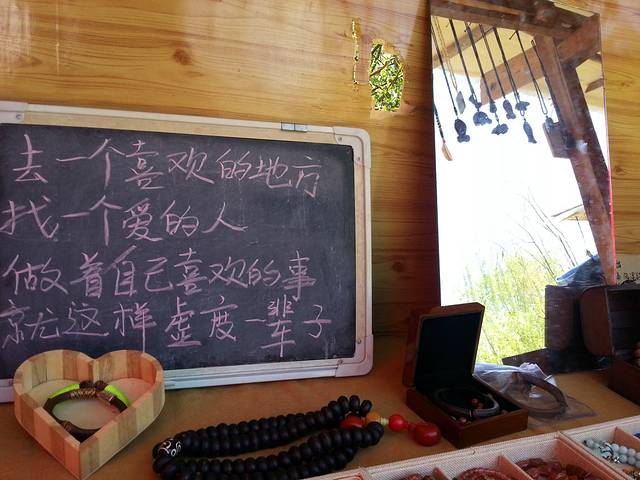 去一个喜欢的地方
找一个爱的人
做着自己喜欢的事
就这样虚度一辈子